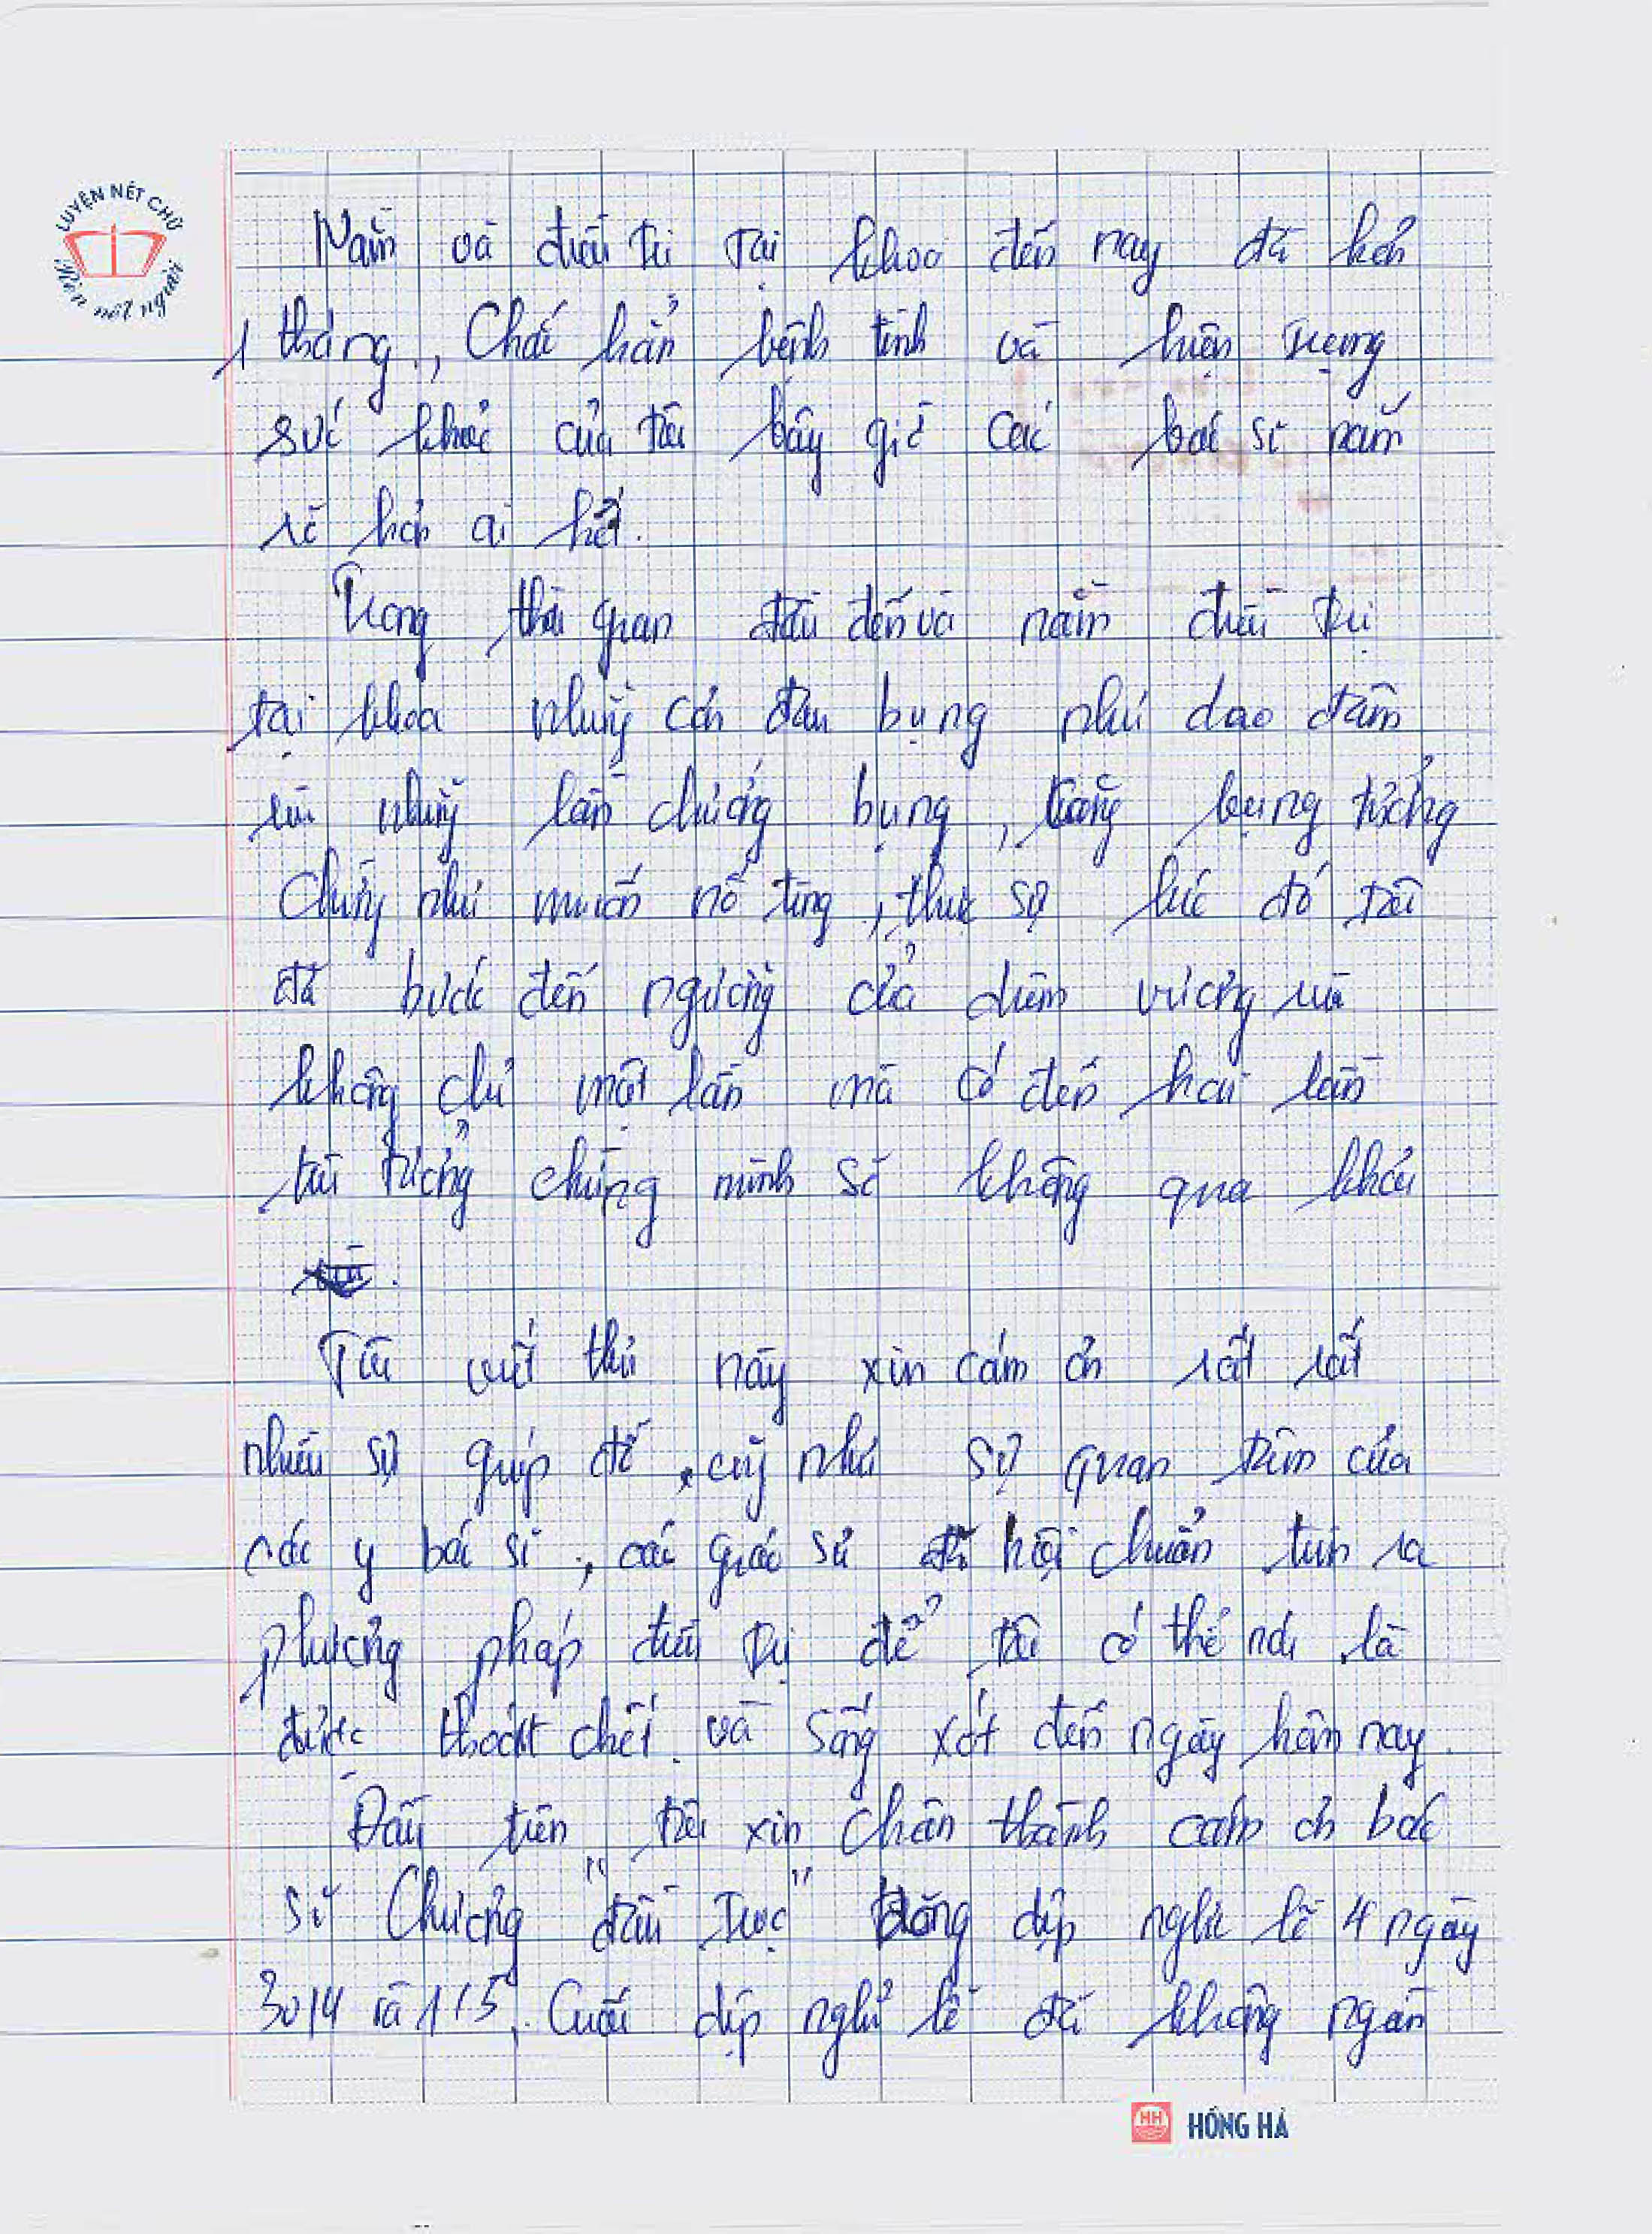 LUYỆN NÉT CHỮ
Rèn nết người
Nằm và điều trị tại khoa đến nay đã hơn
1 tháng, Chắc hẳn bệnh tình và hiện trạng
sức khoẻ của tôi bây giờ các bác sĩ nắm
rõ hơn ai hết.
Trong thời gian đầu đến và nằm điều trị
tại khoa những cơn đau bụng như dao đâm
rồi những lần chướng bụng, căng bụng tưởng
chừng như muốn nổ tung, thực sự lúc đó tôi
đã bước đến ngưỡng cửa diêm vương mà
không chỉ một lần mà có đến hai lần
tôi tưởng chừng mình sẽ không qua khỏi
.
Tôi viết thư này xin cám ơn rất rất
nhiều sự giúp đỡ, cũng như sự quan tâm của
các y bác sĩ, các giáo sư đã hội chuẩn tìm ra
phương pháp điều trị để tôi có thể nói là
được thoát chết và sống xót đến ngày hôm nay.
Đầu tiên tôi xin chân thành cám ơn bác
sĩ Chương "đầu trọc" trong dịp nghỉ lễ 4 ngày
30/4 và 1/5. Cuối dịp nghỉ lễ đã không ngần
HH HỒNG HÀ